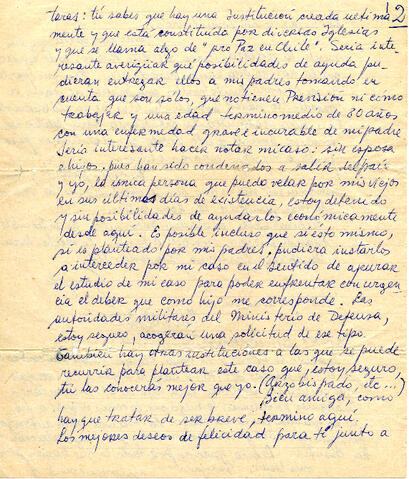 2
teras: tú sabes que hay una Institución creada ultima
mente y que está constituida por diversas Iglesias
y que se llama algo de "pro Paz en Chile". Sería inte-
resante averiguar que posibilidades de ayuda pu-
dieran entregar ellos a mis padres tomando en
cuenta que son sólos, que no tienen Pensión ni cómo
trabajar y una edad termino medio de 80 años
con una enfermedad grave e incurable de mi padre
Sería interesante hacer notar mi caso: sin esposa
e hijos, pues han sido condenados a salir del país
y yo, la única persona que puede velar por mis viejos
en sus últimos días de existencia, estoy detenido
y sin posibilidades de ayudarlos económicamente
desde aquí. Es posible incluso que si ésto mismo,
si es planteado por mis padres, pudiera instarlos
a interceder por mi caso en el sentido de apurar
el estudio de mi caso para poder enfrentar con urgen-
cia el deber que como hijo me corresponde. Las
autoridades militares del Ministerio de Defensa,
estoy seguro, acogerán una solicitud de ese tipo.
También hay otras instituciones a las que se puede
recurrir para plantear este caso que, estoy seguro,
tú las conocerás mejor que yo. (Arzobispado, etc...)
Bien amiga, como
hay que tratar de ser breve, termino aquí.
Los mejores deseos de felicidad para tí junto a